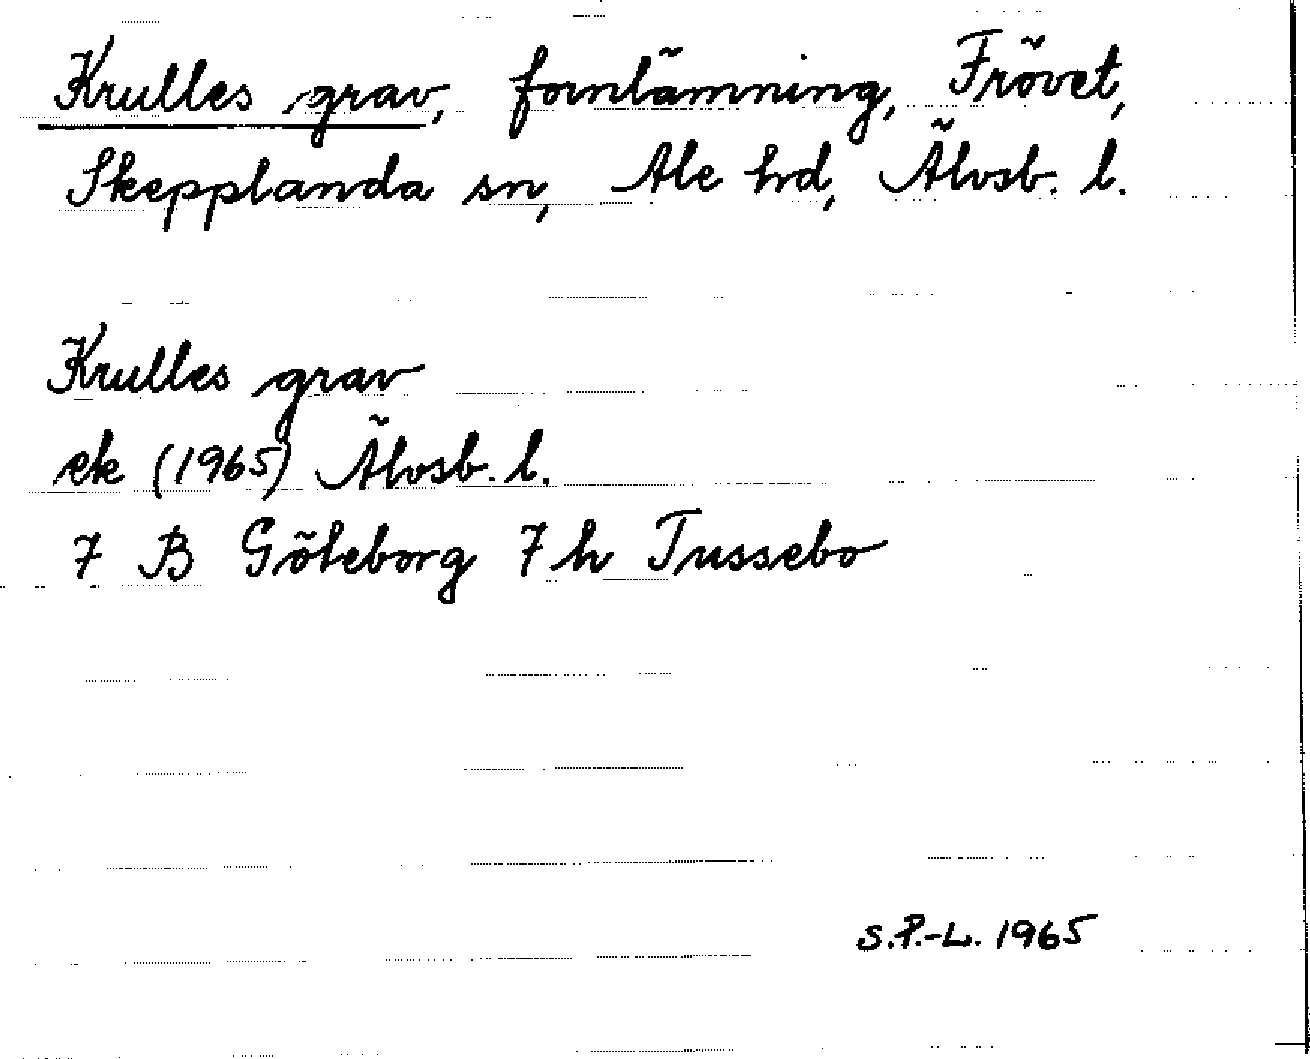 Krulles grav, fornlämning, Frövet,
Skepplanda sn, Ale hd, Älvsb. l.
Krulles grav
ek (1965) Älvsb. l.
7 B Göteborg 7 h Tussebo
S.P.-L. 1965